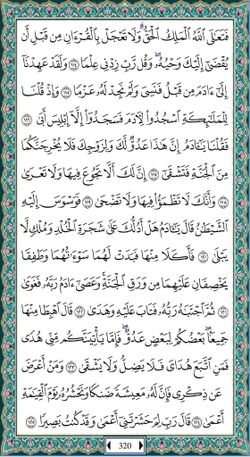 فَتَعَٰلَى ٱللَّهُ ٱلْمَلِكُ ٱلْحَقُّ ۗ وَلَا تَعْجَلْ بِٱلْقُرْءَانِ مِن قَبْلِ أَن
يُقْضَىٰٓ إِلَيْكَ وَحْيُهُۥ ۖ وَقُل رَّبِّ زِدْنِى عِلْمًا ١١٤ وَلَقَدْ عَهِدْنَآ
إِلَىٰٓ ءَادَمَ مِن قَبْلُ فَنَسِىَ وَلَمْ نَجِدْ لَهُۥ عَزْمًا ١١٥ وَإِذْ قُلْنَا
لِلْمَلَٰٓئِكَةِ ٱسْجُدُوا۟ لِءَادَمَ فَسَجَدُوٓا۟ إِلَّآ إِبْلِيسَ أَبَىٰ ١١٦
فَقُلْنَا يَٰٓـَٔادَمُ إِنَّ هَٰذَا عَدُوٌّ لَّكَ وَلِزَوْجِكَ فَلَا يُخْرِجَنَّكُمَا
مِنَ ٱلْجَنَّةِ فَتَشْقَىٰٓ ١١٧ إِنَّ لَكَ أَلَّا تَجُوعَ فِيهَا وَلَا تَعْرَىٰ
١١٨ وَأَنَّكَ لَا تَظْمَؤُا۟ فِيهَا وَلَا تَضْحَىٰ ١١٩ فَوَسْوَسَ إِلَيْهِ
ٱلشَّيْطَٰنُ قَالَ يَٰٓـَٔادَمُ هَلْ أَدُلُّكَ عَلَىٰ شَجَرَةِ ٱلْخُلْدِ وَمُلْكٍ لَّا
يَبْلَىٰ ١٢٠ فَأَكَلَا مِنْهَا فَبَدَتْ لَهُمَا سَوْءَٰتُهُمَا وَطَفِقَا
يَخْصِفَانِ عَلَيْهِمَا مِن وَرَقِ ٱلْجَنَّةِ ۚ وَعَصَىٰٓ ءَادَمُ رَبَّهُۥ فَغَوَىٰ
١٢١ ثُمَّ ٱجْتَبَٰهُ رَبُّهُۥ فَتَابَ عَلَيْهِ وَهَدَىٰ ١٢٢ قَالَ ٱهْبِطَا مِنْهَا
جَمِيعًۢا ۖ بَعْضُكُمْ لِبَعْضٍ عَدُوٌّ ۖ فَإِمَّا يَأْتِيَنَّكُم مِّنِّى هُدًى
فَمَنِ ٱتَّبَعَ هُدَاىَ فَلَا يَضِلُّ وَلَا يَشْقَىٰ ١٢٣ وَمَنْ أَعْرَضَ
عَن ذِكْرِى فَإِنَّ لَهُۥ مَعِيشَةً ضَنكًا وَنَحْشُرُهُۥ يَوْمَ ٱلْقِيَٰمَةِ
أَعْمَىٰ ١٢٤ قَالَ رَبِّ لِمَ حَشَرْتَنِىٓ أَعْمَىٰ وَقَدْ كُنتُ بَصِيرًا ١٢٥
320